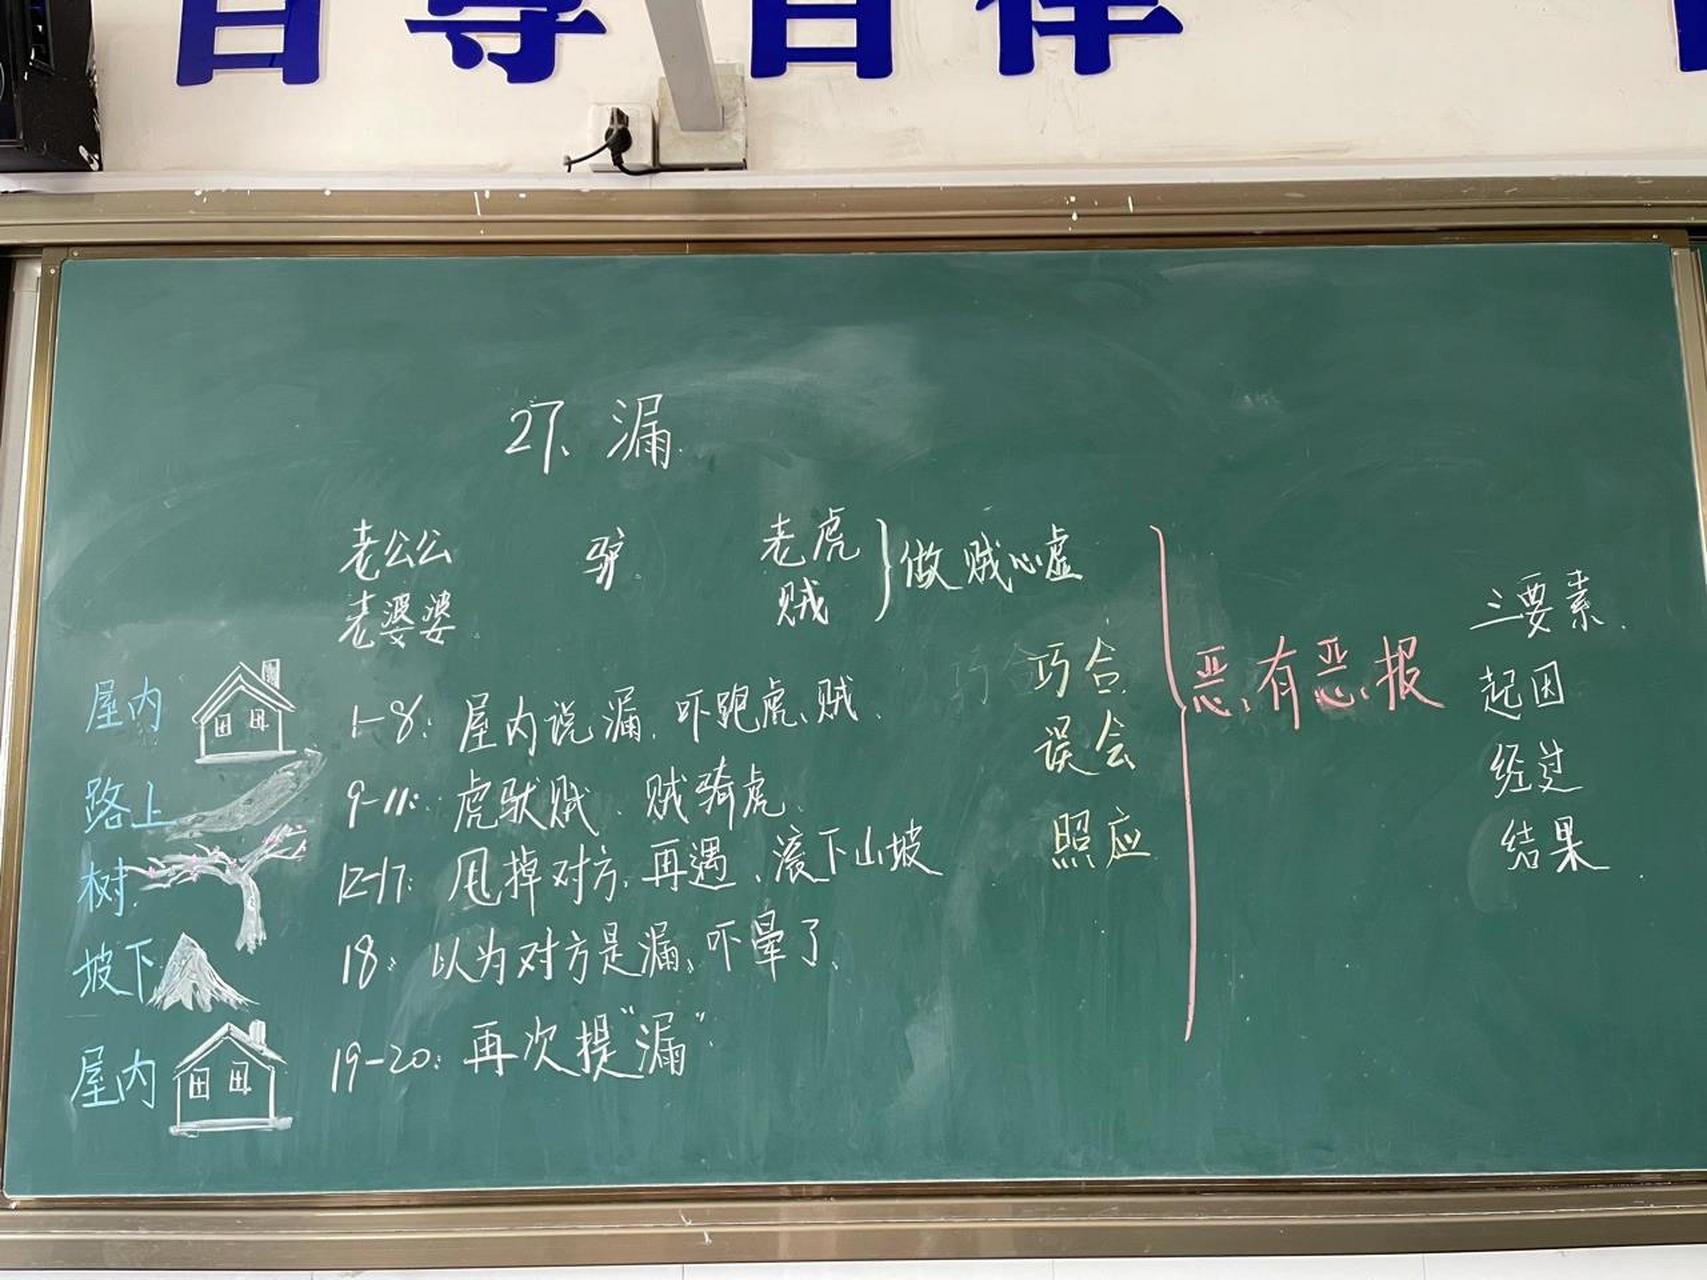 自尊自律
27、漏
老公公 驴 老虎 } 做贼心虚
老婆婆 贼
屋内 1-8：屋内说漏、吓跑虎、贼
路上 9-11：虎驮贼、贼骑虎
树 12-17：甩掉对方、再遇、滚下山坡
坡下 18：以为对方是漏、吓晕了
屋内 19-20：再次提“漏”
巧合
误会
照应
恶有恶报
三要素
起因
经过
结果